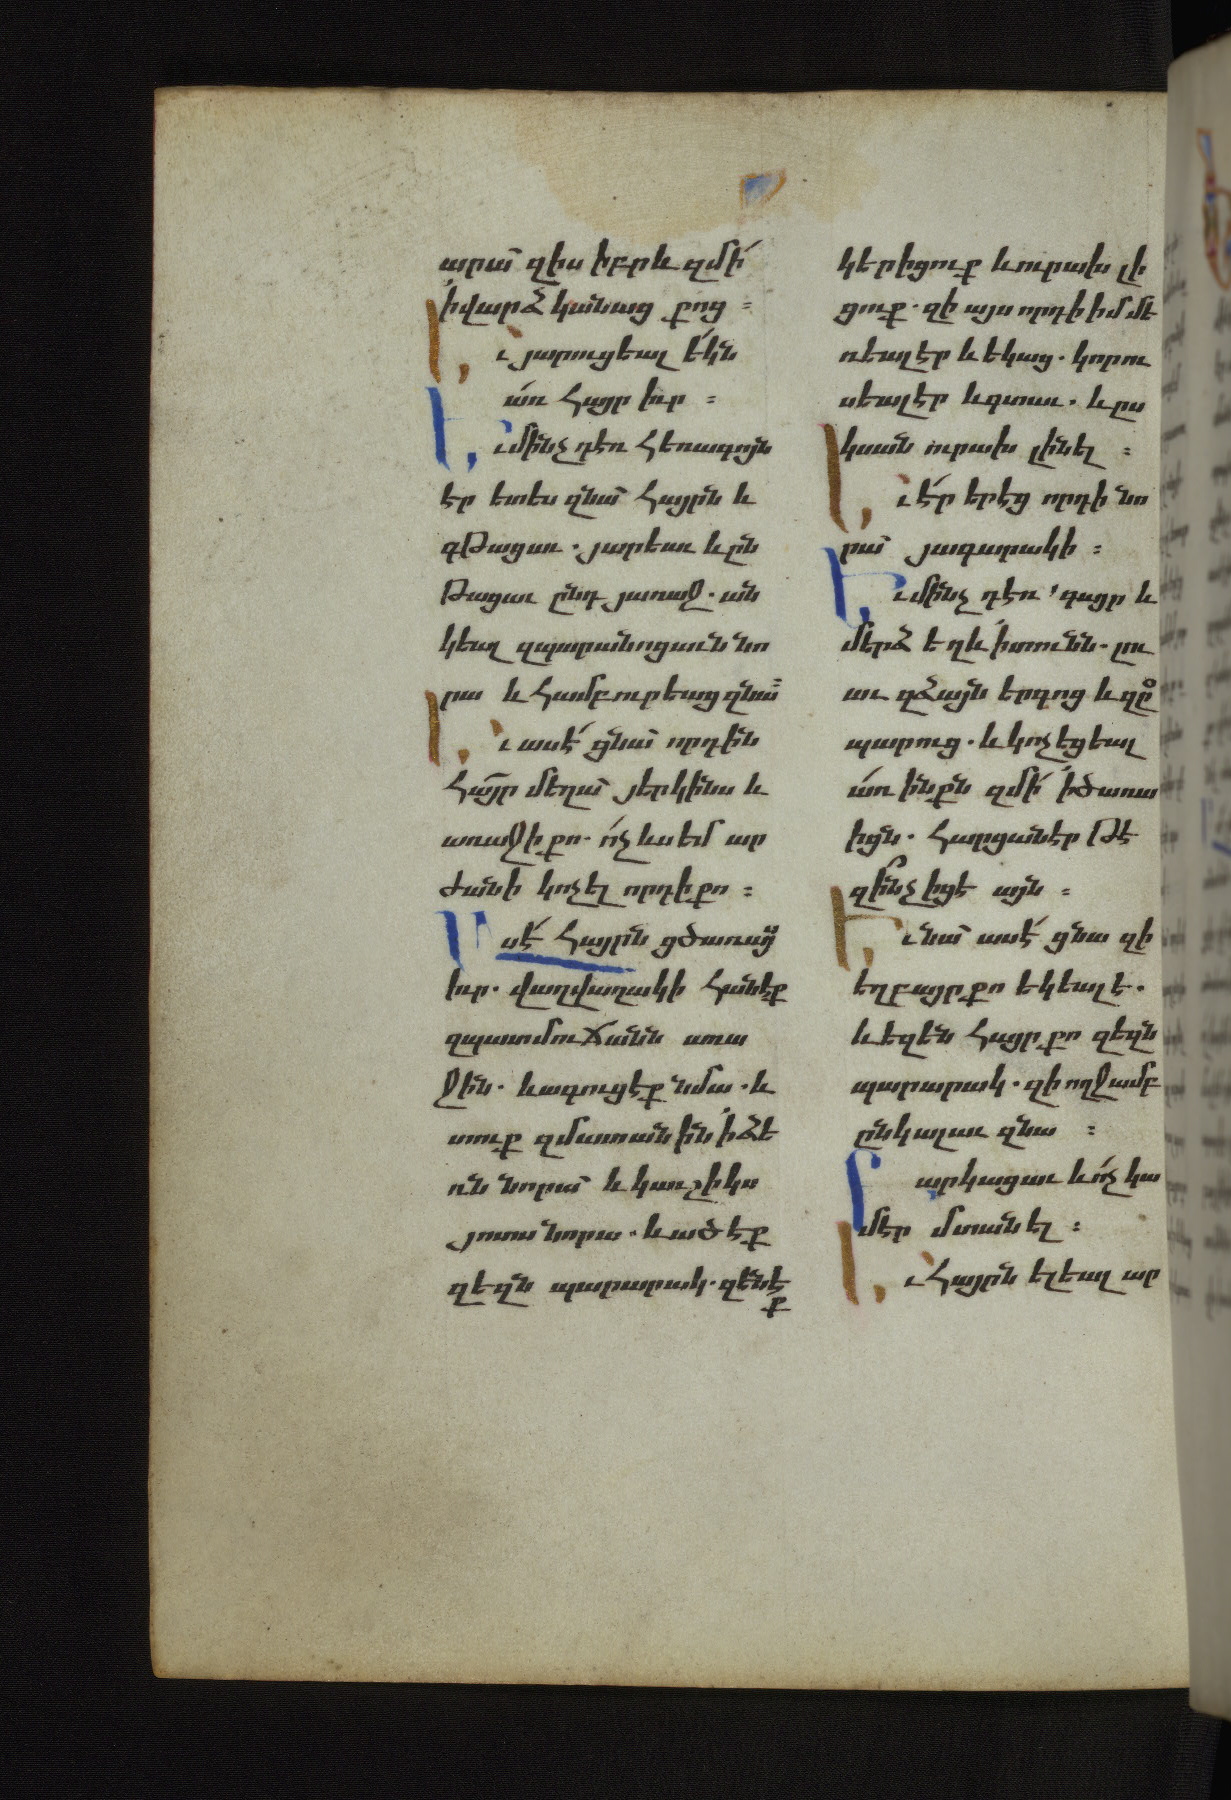 արա՛ զիս իբրև զմի՛
ի վարձկանաց քոց ։
Եւ յարուցեալ ե՛կն
ա՛ռ հայր իւր ։
Եւ մինչ դեռ հեռագոյն
էր ետես զնա՛ հայրն և
գթացաւ . յարեաւ և ըն
թացաւ ընդ յառաջ . ան
կեալ զպարանոցաւն նո
րա և համբուրեաց զնա՛ ։
Եւ ասէ՛ ցնա՛ որդին
հա՛յր մեղա՛ յերկինս և
առաջի քո . ո՛չ ևս եմ ար
ժանի կոչել որդի քո ։
Ասէ՛ հայրն ցծառայս
իւր . վաղվաղակի հանէք
զպատմուճանն առա
ջին . և ագուցէք նմա . և
տուք զմատանին ի ձե
ռն նորա՛ և կաւշիկս
յոտս նորա . և ածէք
զեզն պարարակ . զենէ
ք
կերիցուք և ուրախ լի
ցուք . զի այս որդի իմ մե
ռեալ էր և եկաց . կորու
սեալ էր և գտաւ . և ըս
կսան ուրախ լինել ։
Եւ է՛ր երէց որդի նո
րա՛ յագարակի ։
Եւ մինչ դեռ գայր և
մերձ եղև ի տունն . լու
աւ զձայն երգոց և զը
պարուց . և կոչեցեալ
ա՛ռ ինքն զմի՛ ի ծառա
իցն . հարցանէր թէ
զի՛նչ իցէ այն ։
Եւ նա՛ ասէ՛ ցնա զի
եղբայր քո եկեալ է .
և եզեն հայր քո զեզն
պարարակ . զի ողջամբ
ընկալաւ զնա ։
Բարկացաւ և ո՛չ կա
մէր մտանել ։
Եւ հայրն ելեալ ար